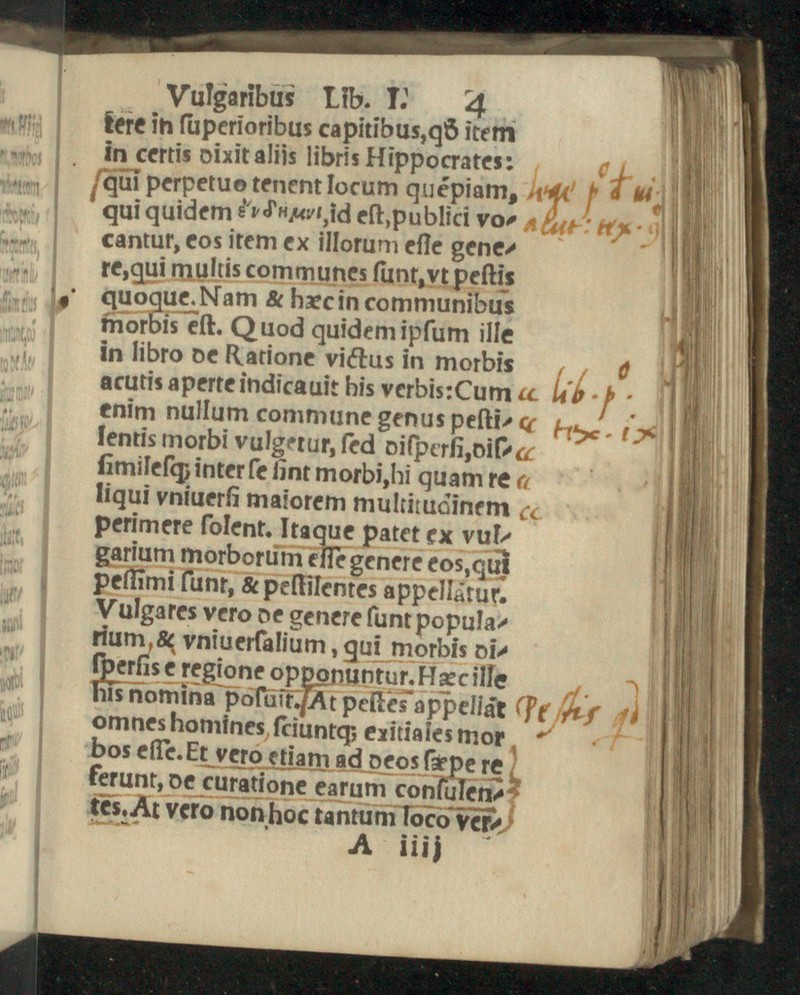 Vulgaribus Lib. I. 4
tere in ſuperioribus capitibus,qđ item
in certis dixit aliis libris Hippocrates:
qui perpetuo tenent locum quépiam,
qui quidem ἔνδημοι,id eſt,publici vo⸗
cantur, eos item ex illorum eſſe gene⸗
re,qui multis communes ſunt,vt peſtis
quoque.Nam & hæc in communibus
morbis eſt. Quod quidem ipſum ille
in libro de Ratione victus in morbis
acutis aperte indicauit his verbis:Cum
lib.
enim nullum commune genus peſti⸗
lentis morbi vulgetur, ſed diſperſi,diſ⸗
ſimileſq; inter ſe ſint morbi,hi quam re
liqui vniuerſi maiorem multitudinem
perimere ſolent. Itaque patet ex vul⸗
garium morborum eſſe genere eos,qui
peſſimi ſunt, & peſtilentes appellãtur.
Vulgares vero de genere ſunt popula⸗
rium,& vniuerſalium, qui morbis di⸗
ſperſis e regione opponuntur.Hæc ille
his nomina poſuit.At peſtes appellãt
Peſtis
omnes homines, ſciuntq; exitiales mor
bos eſſe.Et vero etiam ad deos ſæpe re
ferunt, de curatione earum conſulen⸗
tes.At vero non hoc tantum loco ver⸗
A iiij